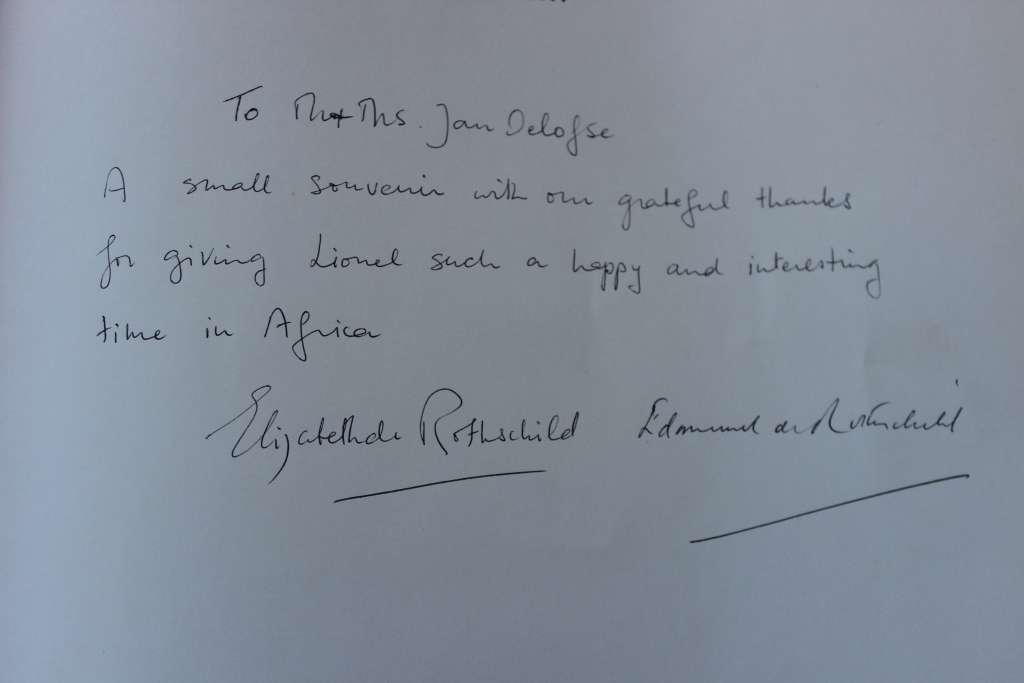 To Mr + Mrs. Jan Delofse
A small souvenir with our grateful thanks
for giving Lionel such a happy and interesting
time in Africa
Elizabeth de Rothschild Edmund de Rothschild